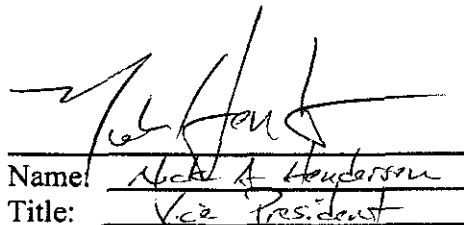 Name: Nick A Henderson
Title: Vice President